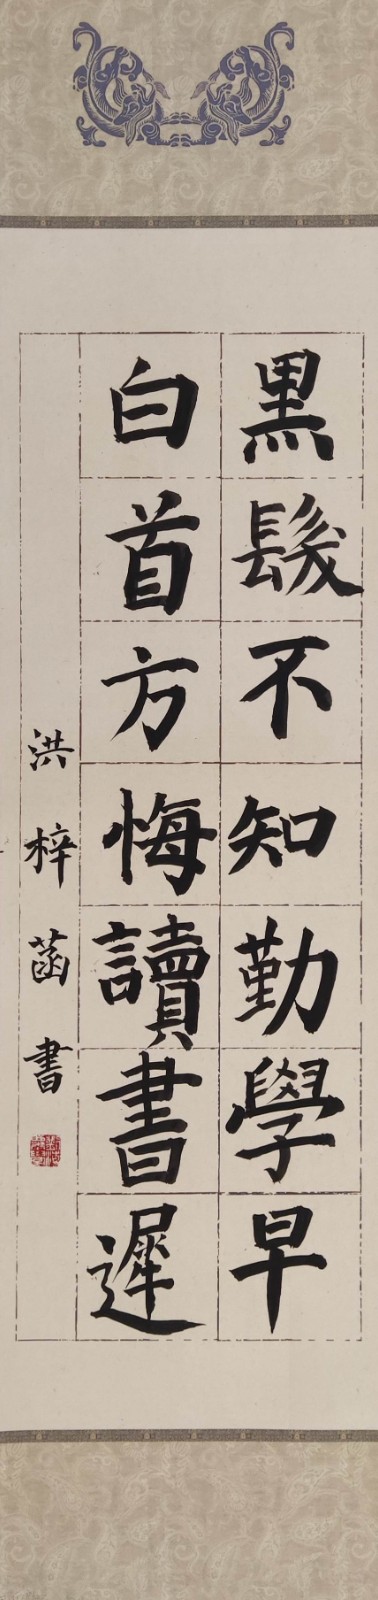 黑髮不知勤學早
白首方悔讀書遲
洪梓菡書